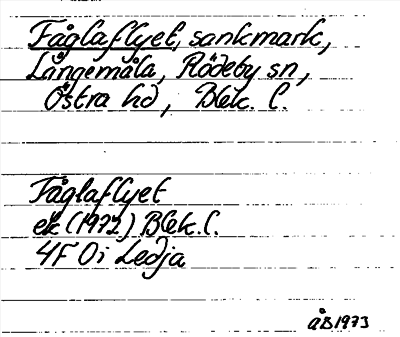 Fåglaflyet, sankmark,
Långemåla, Rödeby sn,
Östra hd, Blek. l.
Fåglaflyet
ek (1972) Blek. l.
4F 0i Ledja
ÅB 1973